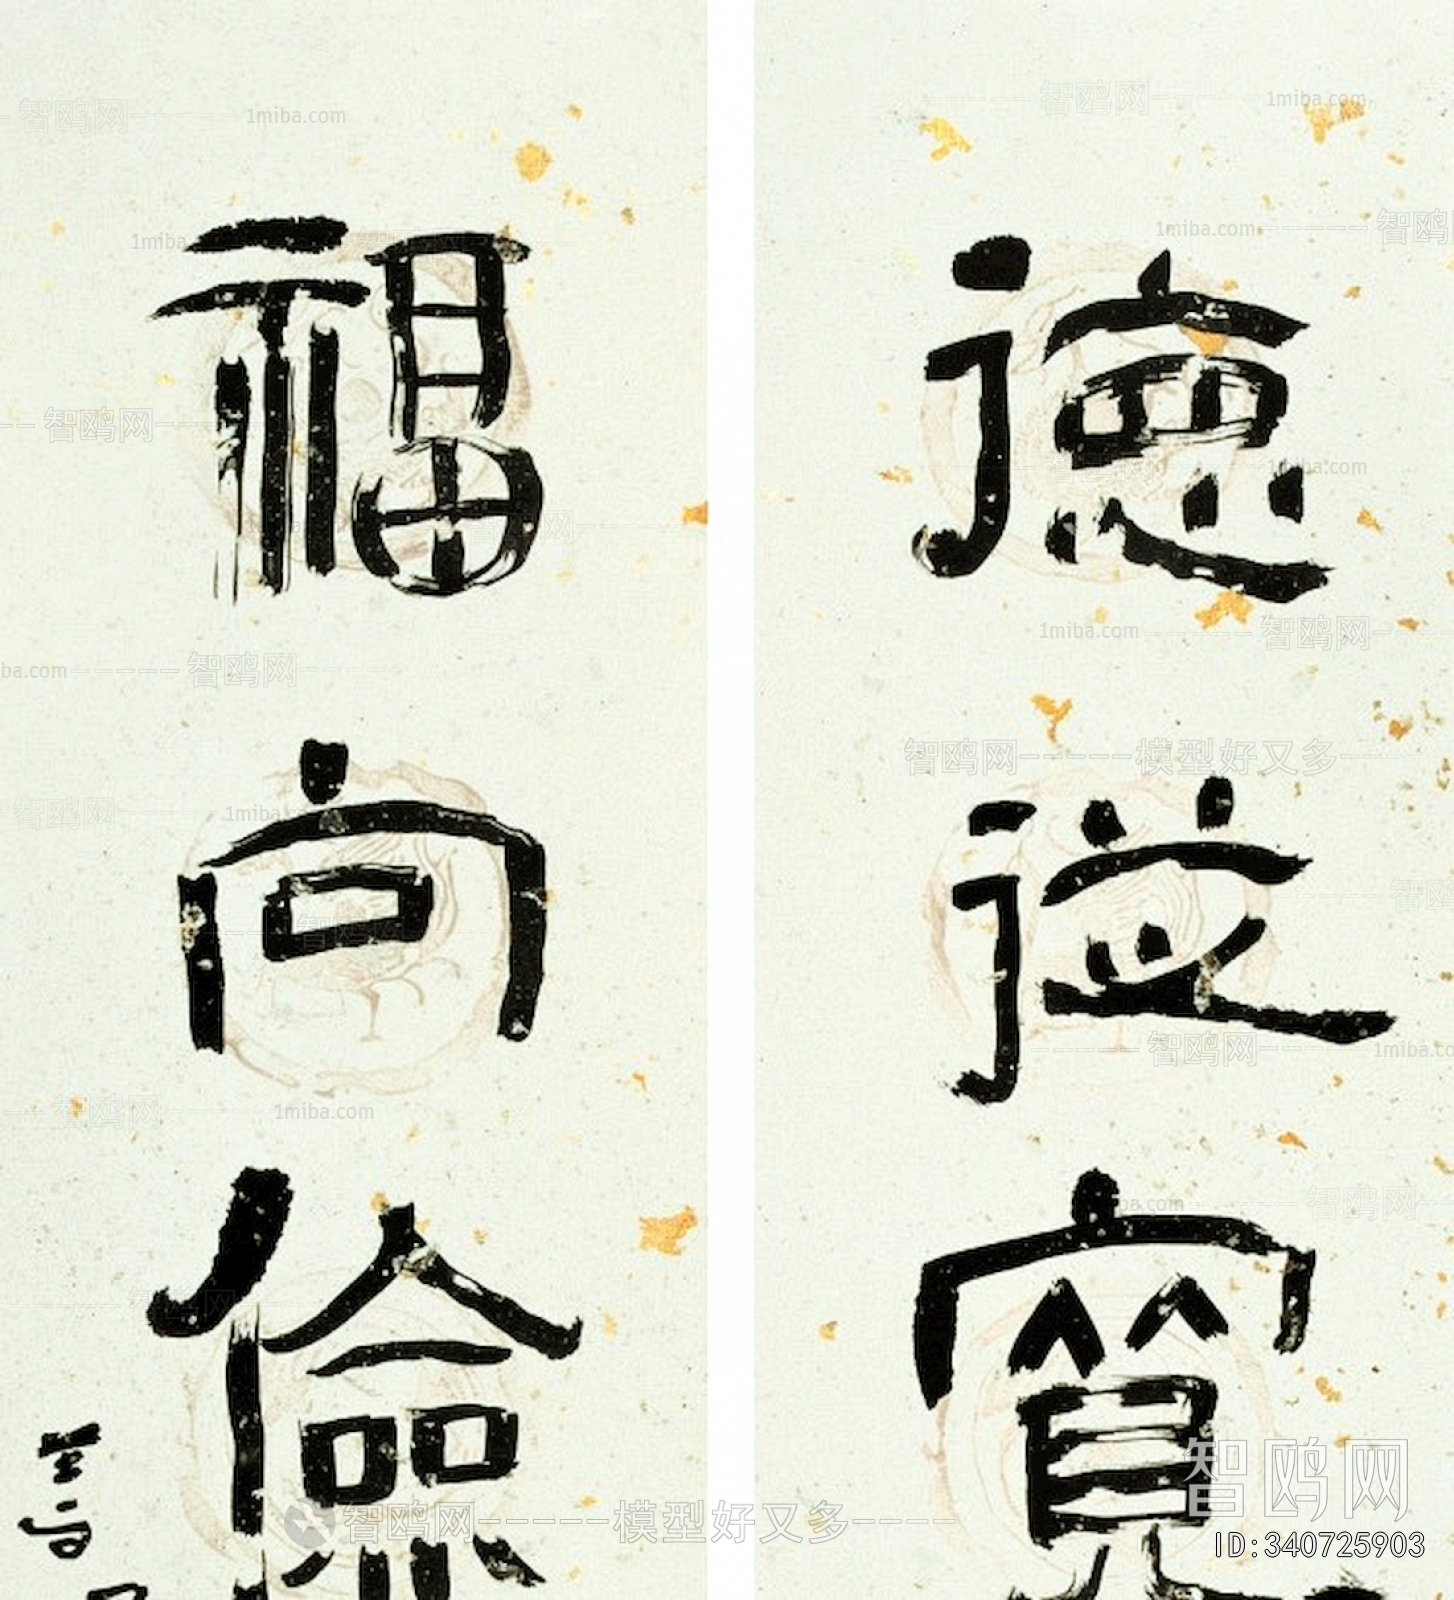 德從寬
福向儉
智鸥网
ID:340725903
1miba.com
智鸥网-----模型好又多----